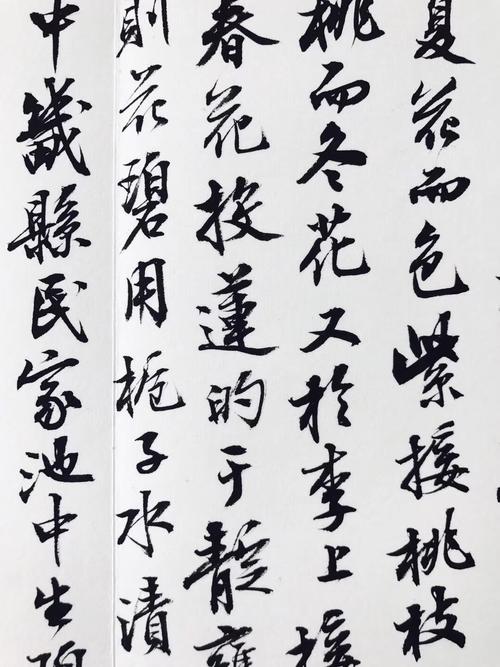 夏花而色紫接桃枝
桃而冬花又於李上接
春花投蓮的于靛甕
則花碧用梔子水漬
中畿縣民家池中生